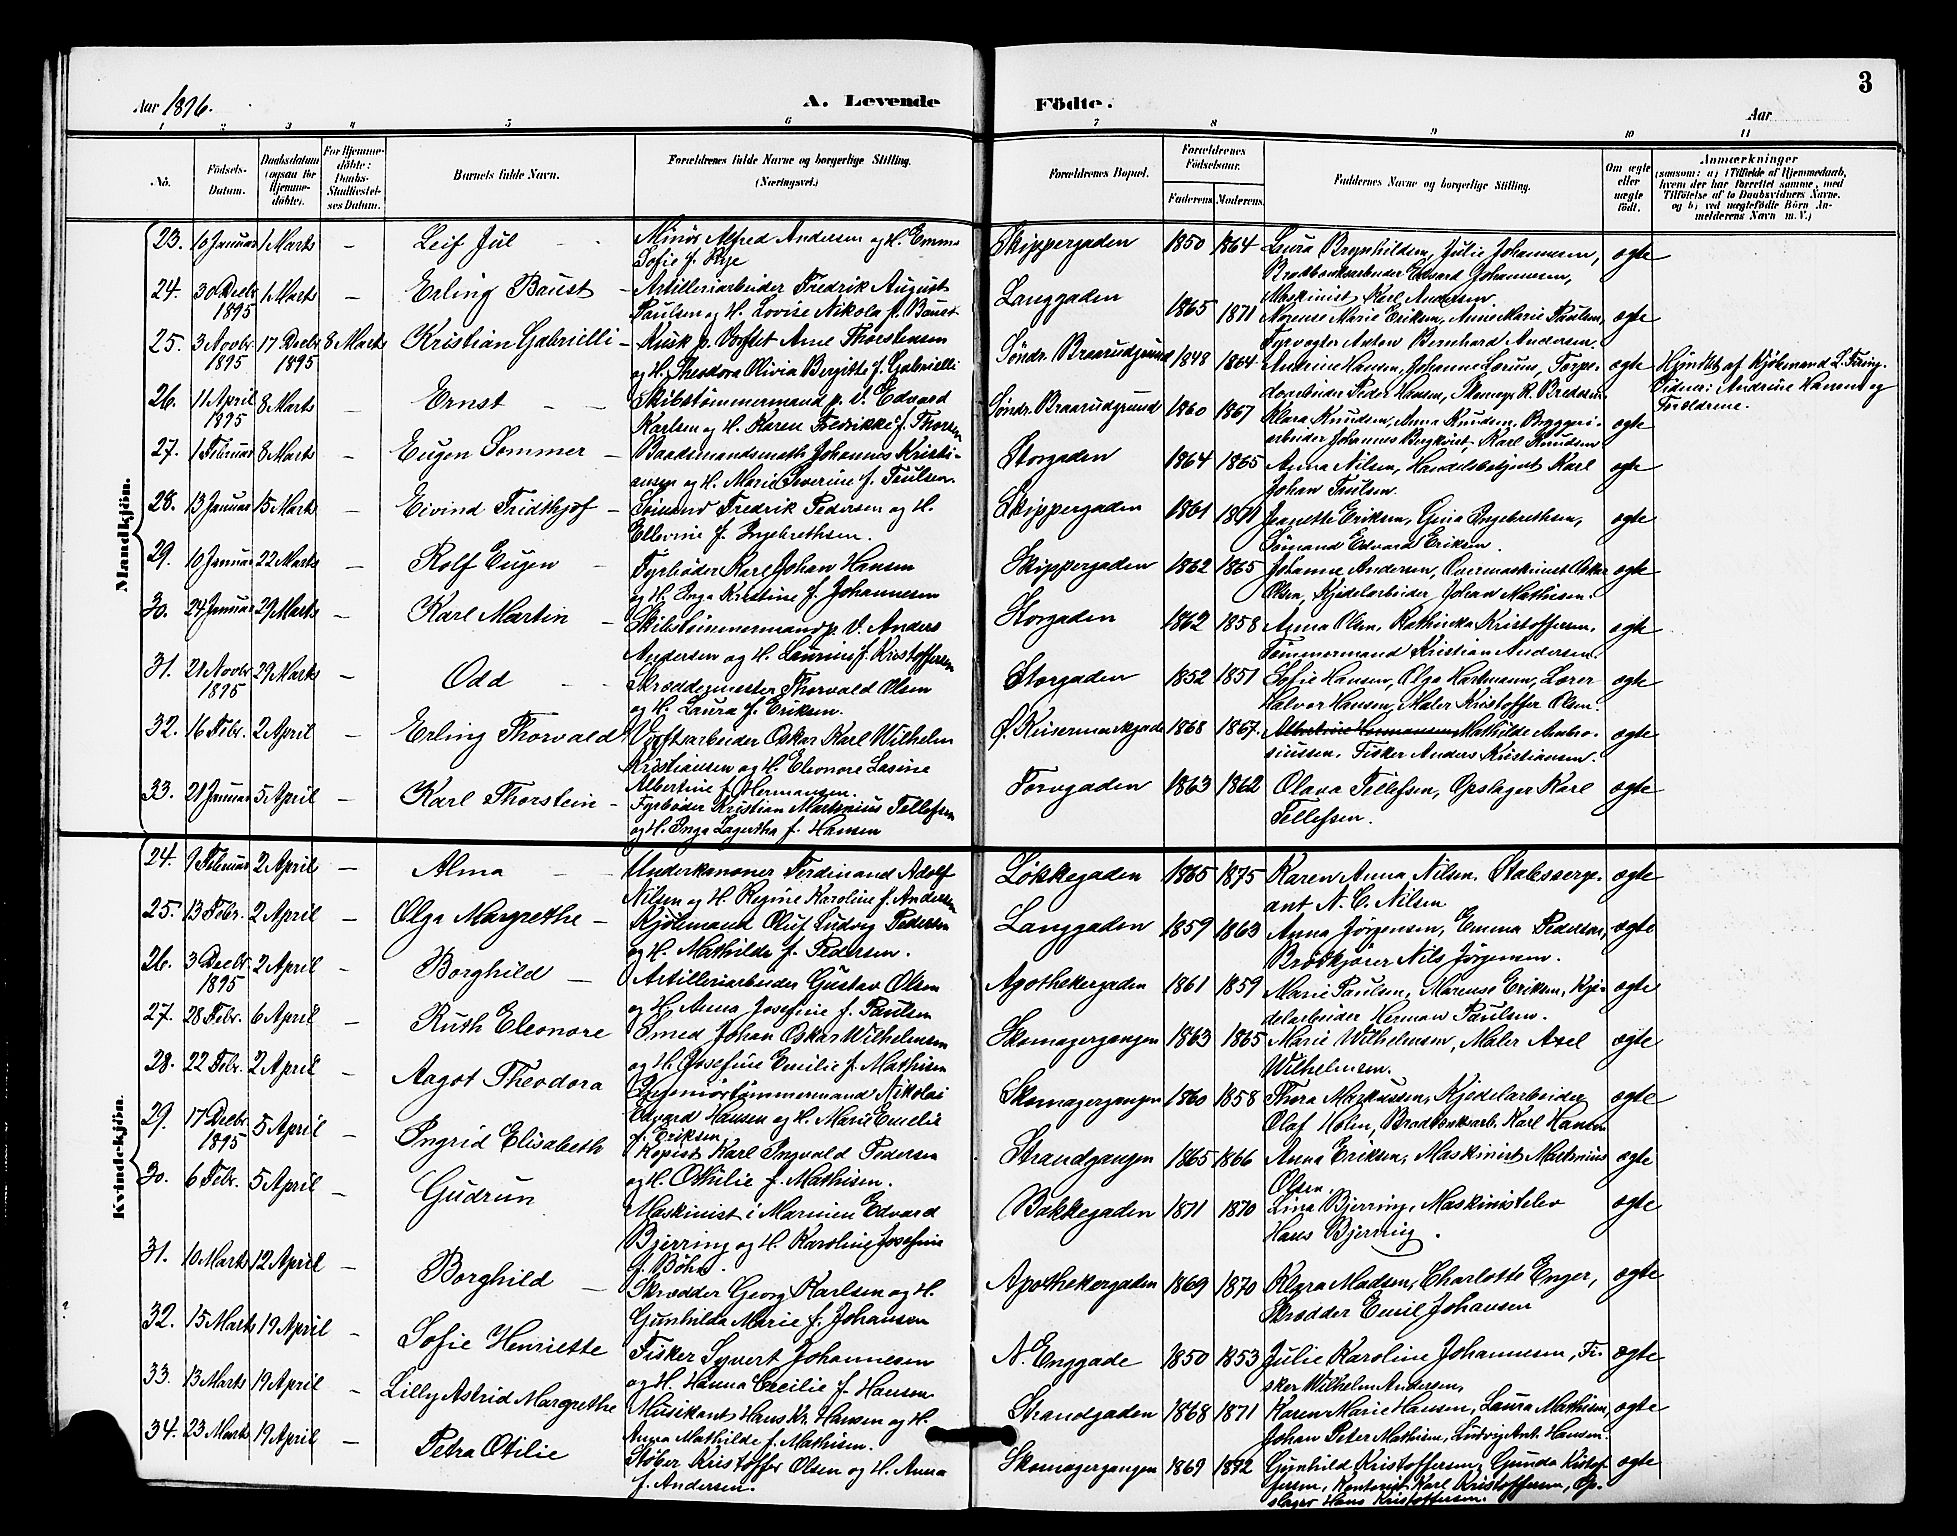 3
Aar 1896.
A. Levende Födte.
Aar
1 2 3 4 5 6 7 8 9 10 11
No. Födsels-Datum. Daabsdatum (ogsaa for Hjemmedöbte). For Hjemmedöbte: Daabs-Stadfæstelses Datum. Barnets fulde Navn. Forældrenes fulde Navne og borgerlige Stilling. (Næringsvei.) Forældrenes Bopæl. Forældrenes Födselsaar. Faderens Moderens. Faddernes Navne og borgerlige Stilling. Om ægte eller uægte födt. Anmærkninger (saasom: a) i Tilfælde af Hjemmedaab, hvem der har forrettet samme, med Tilföielse af to Daabsvidners Navne. og b) ved uægtefödte Börn Anmelderens Navn m. V.)
Mandkjön.
23. 10 Januar 1 Marts – Leif Jul – Minör Alfred Andersen og H. Emma
Sofie f. Rye
Skippergaden 1850 1864 Laura Brynhildsen, Julie Johannesen, ægte
Brødbankarbeider Edvard Johannesen,
Maskinist Karl Andersen.
24. 30 Decbr 1895 1 Marts – Erling Baust – Artilleriarbeider Fredrik August
Paulsen og H. Lovise Nikola f. Baust
Langgaden 1865 1871 Marense Marie Eriksen, Anne Marie Paulsen, ægte
Fyrvogter Anton Bernhard Andersen.
25. 3 Novbr. 1895 17 Decbr 1895 8 Marts Kristian Gabrielli – Kusk p. Verftet Arne Thorstensen
og H. Theodora Olivia Bergitte f. Gabrielli
Söndr. Braarudgrund 1848 1864 Andrine Hansen, Johanne Lorum, Torpe- ægte
doarbeider Peder Hansen, R. Bredesen
Hjmdbt af Kjöbmand L. Fring.
Vidner: Andrine Hansen og
Forældrene.
26. 11 April 1895 8 Marts – Ernst – Skibstömmermand p. V. Edvard
Karlsen og H. Karen Fredrikke f. Thorsen
Söndr. Braarudgrund 1860 1867 Klara Knudsen, Anna Knudsen, Bryggeri- ægte
arbeider Johannes Bergkvist, Karl Knudsen
27. 1 Februar 8 Marts – Eugen Sommer – Baadsmandsmath Johannes Kristi-
ansen og H. Marie Severine f. Paulsen.
Storgaden 1864 1865 Anna Nilsen, Handelsbetjent Karl ægte
Johan Paulsen.
28. 13 Januar 15 Marts – Eivind Fridthjof – Sömand Fredrik Pedersen og H.
Ellevine f. Ingebrethsen.
Skippergaden 1861 Jeanette Eriksen, Gina Ingebrethsen, ægte
Sömand Edvard Eriksen.
29. 10 Januar 22 Marts – Rolf Eugen – Fyrböder Karl Johan Hansen
og H. Inga Kristine f. Johannesen
Skippergaden 1862 1865 Johanne Andersen, Overmaskinist Oskar ægte
Olsen, Kjedelarbeider Johan Mathisen.
30. 24 Januar 29 Marts – Karl Martin – Skibstömmermand p. V. Anders
Andersen og H. Laurine f. Kristoffersen
Storgaden 1862 1858 Anna Olsen, Kathinka Kristoffersen, ægte
Tömmermand Kristian Andersen.
31. 21 Novbr 1895 29 Marts – Odd – Skræddermester Thorvald Olsen
og H. Laura f. Eriksen.
Storgaden 1852 1851 Sofie Hansen, Olga Hartmann, Lærer ægte
Halvor Hansen, Maler Kristoffer Olsen.
32. 16 Febr. 2 April – Erling Thorvald Verftsarbeider Oskar Karl Wilhelm
Kristiansen og H. Eleonore Lasine
Albertine f. Hermansen.
Ö. Keisermarkgade 1868 1867. Mathilde Ambro- ægte
siussen, Fisker Anders Kristiansen.
33. 21 Januar 5 April – Karl Thorstein – Fyrböder Kristian Martinius Tellefsen
og H. Inga Lagertha f. Hansen
Torvgaden 1863 1862 Olava Tellefsen, Opslager Karl ægte
Tellefsen.
Kvindekjön.
24. 9 Februar 2 April – Alma – Underkanoner Ferdinand Adolf
Nilsen og H. Regine Karoline f. Andersen
Løkkegaden 1865 1875 Karen Anna Nilsen, Stabsserge- ægte
ant N. C. Nilsen
25. 13 Febr. 2 April – Olga Margrethe – Kjöbmand Oluf Ludvig Pedersen
og H. Mathilde f. Pedersen.
Langgaden 1859 1863 Anna Jørgensen, Emma Pedersen, ægte
Brødkjører Nils Jørgensen.
26. 3 Decbr. 1895 2 April – Borghild – Artilleriarbeider Gustav Olsen
og H. Anna Josefine f. Paulsen
Apothekergaden 1861 1859 Marie Paulsen, Marense Eriksen, Kje- ægte
delarbeider Herman Paulsen.
27. 28 Febr. 6 April – Ruth Eleonore Smed Johan Oskar Wilhelmsen
og H. Josefine Emilie f. Mathisen
Skomagergangen 1863 1865 Marie Wilhelmsen, Maler Axel ægte
Wilhelmsen.
28. 22 Febr. 2 April – Aagot Theodora Ingeniörtömmermand Nikolai
Edvard Hansen og H. Marie Emelie
f. Eriksen.
Skomagergangen 1860 1858 Thora Markussen, Kjedelarbeider ægte
Olaf Holm, Brødbankarb. Karl Hansen
29. 17 Decbr 1895 5 April – Ingrid Elisabeth Kopist Karl Ingvald Pedersen
og H. Othilie f. Mathisen.
Strandgangen 1865 1866 Anna Eriksen, Maskinist Martinius ægte
Olsen.
30. 6 Febr. 5 April – Gudrun Maskinist i Marinen Edvard
Bjerring og H. Karoline Josefine
f. Böhn.
Bakkegaden 1871 1870 Lina Bjerring, Maskinistelev ægte
Hans Bjerring.
31. 10 Marts 12 April – Borghild – Skrædder Georg Karlsen og H.
Gunhilda Marie f. Johansen
Apothekergaden 1869 1870 Klara Madsen, Charlotte Enger, ægte
Skrædder Emil Johansen
32. 15 Marts 19 April – Sofie Henriette Fisker Syvert Johannesen
og H. Hanna Cecilie f. Hansen
N. Enggade 1850 1853 Julie Karoline Johannesen, Fi- ægte
sker Wilhelm Andersen,
33. 13 Marts 19 April – Lilly Astrid Margrethe Musikant Hans Kr. Hansen og H.
Anna Mathilde f. Mathisen.
Strandgaden 1868 1871 Karen Marie Hansen, Laura Mathisen, ægte
Johan Peter Mathisen, Ludvig Ant. Hansen.
34. 23 Marts 19 April – Petra Otilie Støber Kristoffer Olsen og H. Anna
f. Andersen.
Skomagergangen 1869 1872 Gunhild Kristoffersen, Gunda Kistof- ægte
fersen, Kontorist Karl Kristoffersen, Op-
slager Hans Kristoffersen.